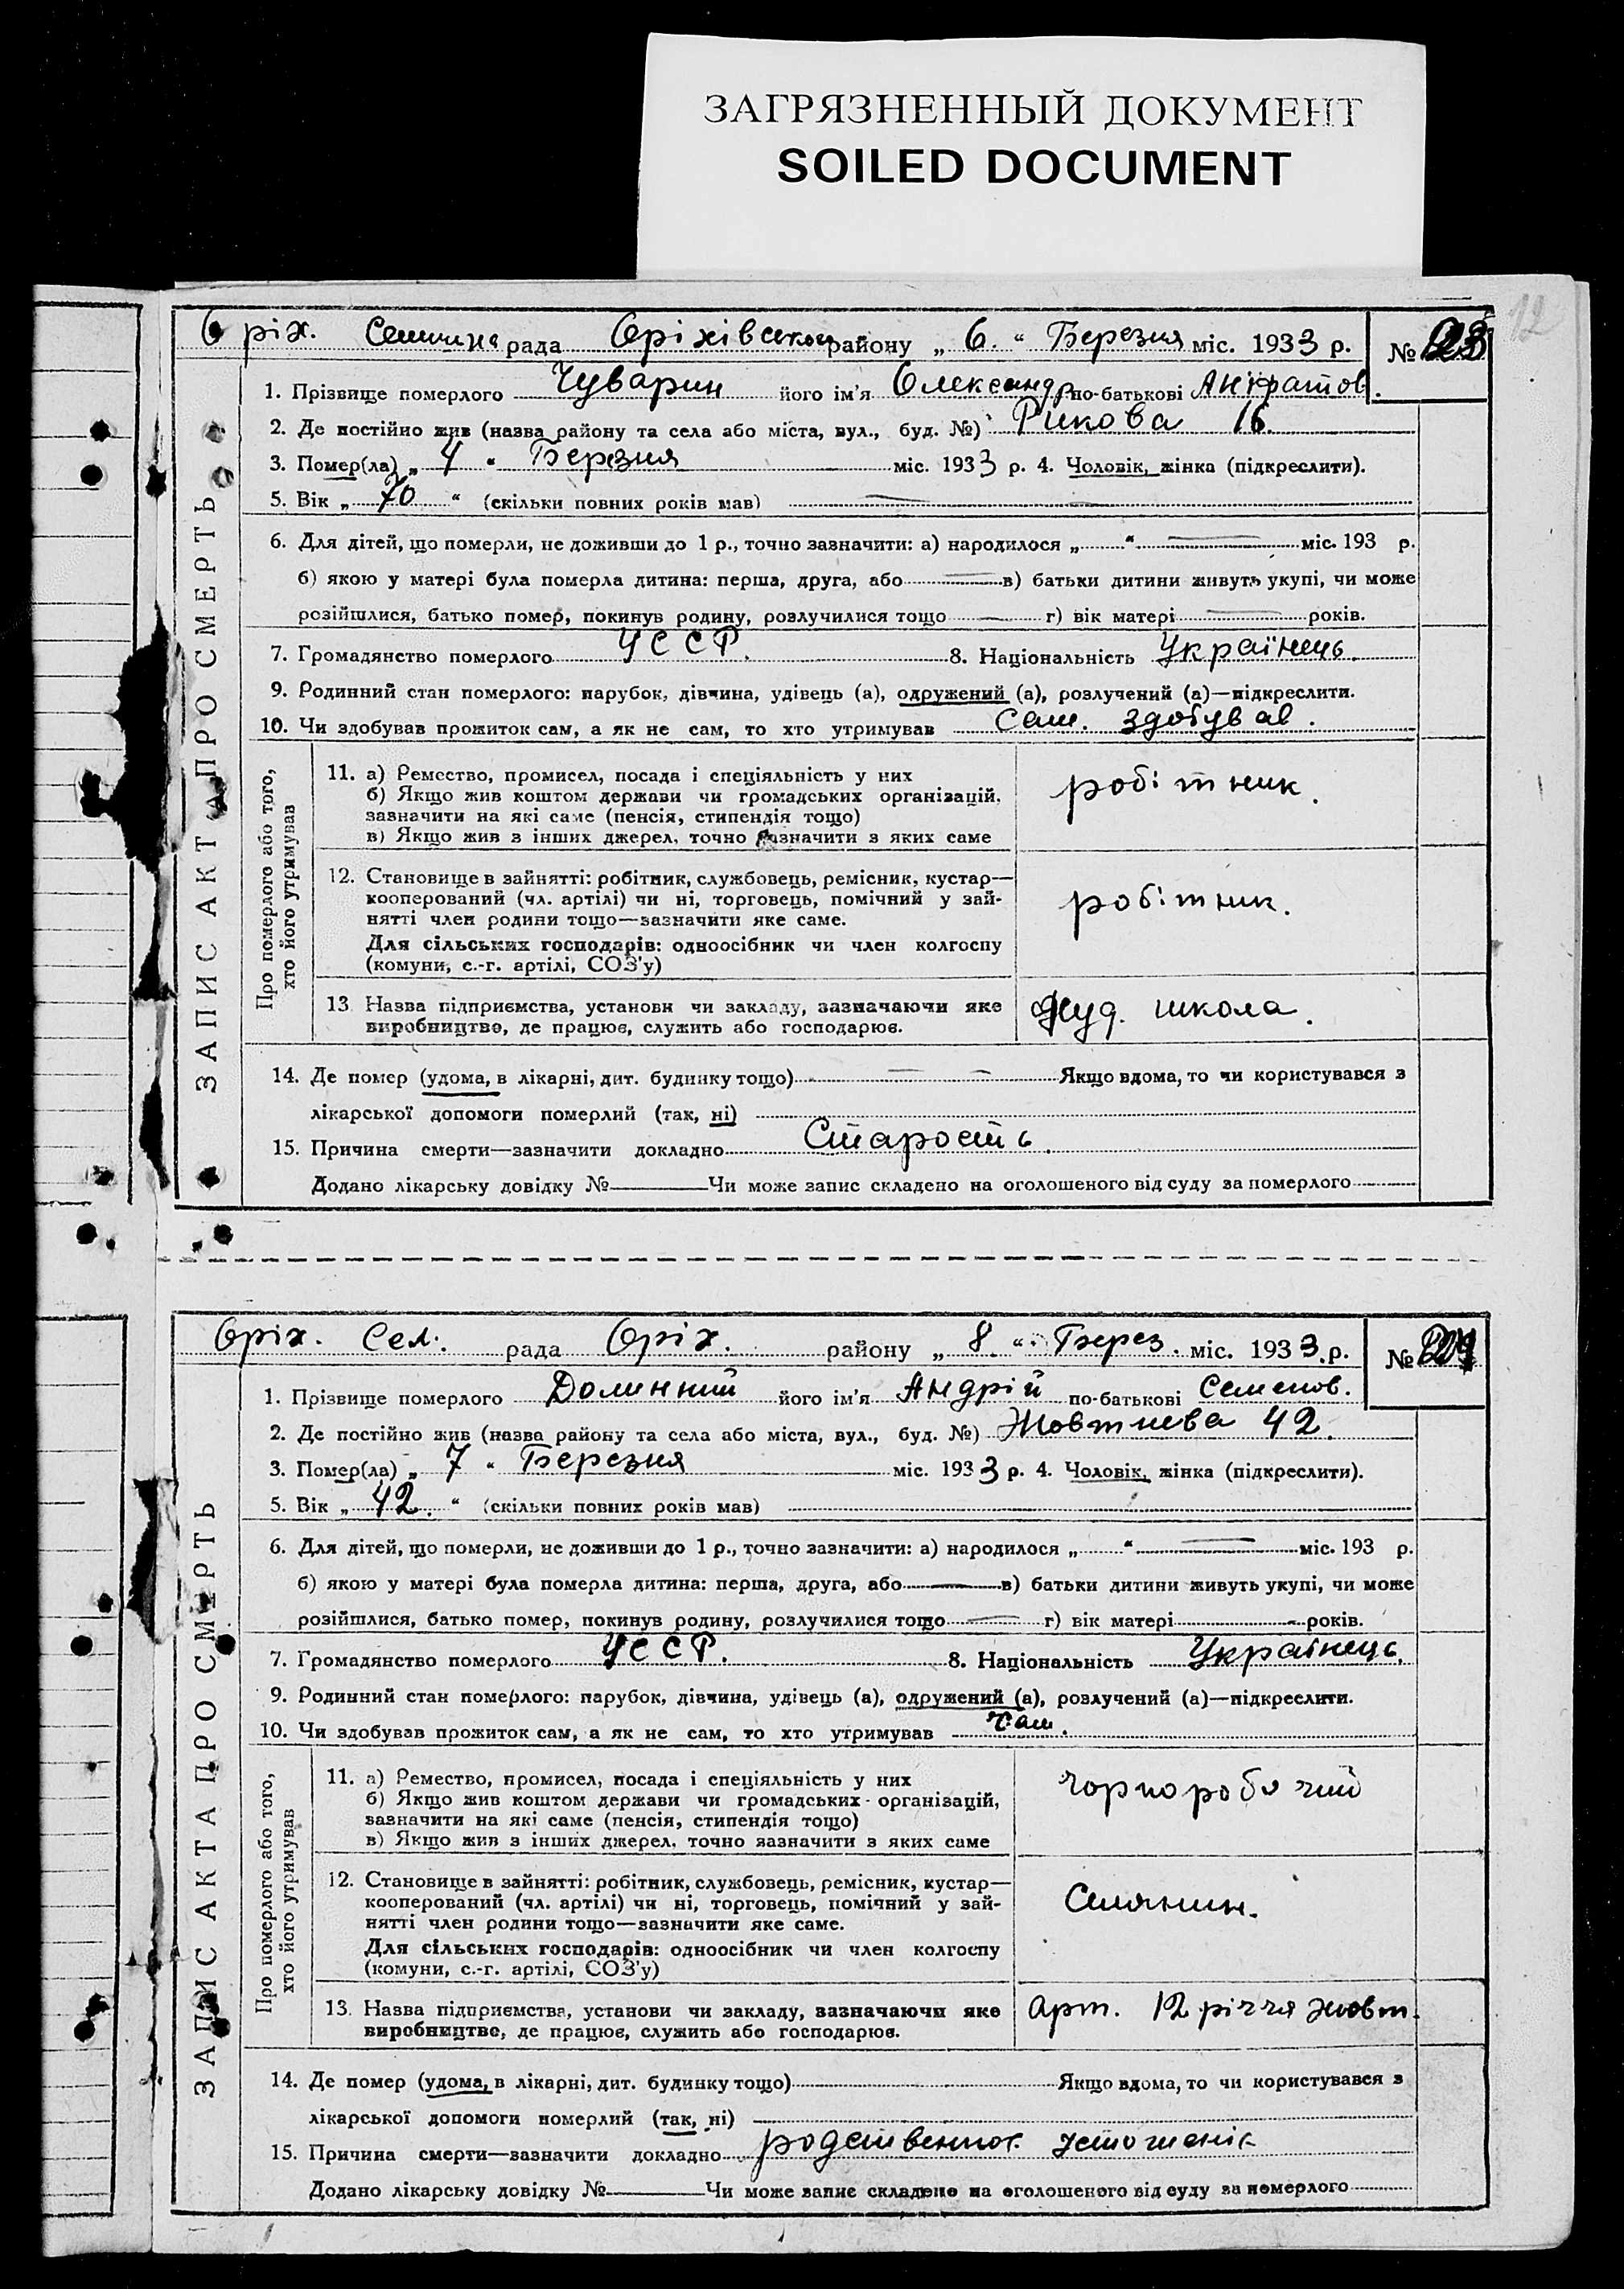 ЗАГРЯЗНЕННЫЙ ДОКУМЕНТ
SOILED DOCUMENT
12
Оріх. Селищна рада Оріхівського району „ 6. “ Березня міс. 1933 р. №
1. Прізвище померлого Чуварин його ім'я Олександр по-батькові
2. Де постійно жив (назва району та села або міста, вул., буд. №) Рикова 16.
3. Помер(ла) „ 4 “ Березня міс. 1933 р. 4. Чоловік, жінка (підкреслити).
5. Вік „ 70 “ (скільки повних років мав)
6. Для дітей, що померли, не доживши до 1 р., точно зазначити: а) народилося „ “ міс. 193 р.
б) якою у матері була померла дитина: перша, друга, або в) батьки дитини живуть укупі, чи може
розійшлися, батько помер, покинув родину, розлучилися тощо г) вік матері років.
7. Громадянство померлого УССР. 8. Національність Українець.
9. Родинний стан померлого: парубок, дівчина, удівець (а), одружений (а), розлучений (а)—підкреслити.
10. Чи здобував прожиток сам, а як не сам, то хто утримував Сам. здобував.
ЗАПИС АКТА ПРО СМЕРТЬ
Про померлого або того,
хто його утримував
11. а) Ремество, промисел, посада і спеціяльність у них
б) Якщо жив коштом держави чи громадських організацій,
зазначити на які саме (пенсія, стипендія тощо)
в) Якщо жив з інших джерел, точно зазначити з яких саме
робітник.
12. Становище в зайнятті: робітник, службовець, ремісник, кустар—
кооперований (чл. артілі) чи ні, торговець, помічний у зай-
нятті член родини тощо—зазначити яке саме.
Для сільських господарів: одноосібник чи член колгоспу
(комуни, с.-г. артілі, СОЗ'у)
робітник.
13. Назва підприємства, установи чи закладу, зазначаючи яке
виробництво, де працює, служить або господарює.
школа.
14. Де помер (удома, в лікарні, дит. будинку тощо) Якщо вдома, то чи користувався з
лікарської допомоги померлий (так, ні)
15. Причина смерти—зазначити докладно Старость.
Додано лікарську довідку № Чи може запис складено на оголошеного від суду за померлого
Оріх. Сел. рада Оріх. району „ 8. “ Берез. міс. 1933.р. №
1. Прізвище померлого Долинний його ім'я Андрій по-батькові Семенов.
2. Де постійно жив (назва району та села або міста, вул., буд. №) Жовтнева 42.
3. Помер(ла) „ 7 “ Березня міс. 1933 р. 4. Чоловік, жінка (підкреслити).
5. Вік „ 42. “ (скільки повних років мав)
6. Для дітей, що померли, не доживши до 1 р., точно зазначити: а) народилося „ “ міс. 193 р.
б) якою у матері була померла дитина: перша, друга, або в) батьки дитини живуть укупі, чи може
розійшлися, батько помер, покинув родину, розлучилися тощо г) вік матері років.
7. Громадянство померлого УССР. 8. Національність Українець.
9. Родинний стан померлого: парубок, дівчина, удівець (а), одружений (а), розлучений (а)—підкреслити.
10. Чи здобував прожиток сам, а як не сам, то хто утримував Сам.
ЗАПИС АКТА ПРО СМЕРТЬ
Про померлого або того,
хто його утримував
11. а) Ремество, промисел, посада і спеціяльність у них
б) Якщо жив коштом держави чи громадських організацій,
зазначити на які саме (пенсія, стипендія тощо)
в) Якщо жив з інших джерел, точно зазначити з яких саме
чорноробочий
12. Становище в зайнятті: робітник, службовець, ремісник, кустар—
кооперований (чл. артілі) чи ні, торговець, помічний у зай-
нятті член родини тощо—зазначити яке саме.
Для сільських господарів: одноосібник чи член колгоспу
(комуни, с.-г. артілі, СОЗ'у)
Селянин.
13. Назва підприємства, установи чи закладу, зазначаючи яке
виробництво, де працює, служить або господарює.
Арт. 12 річчя Жовт.
14. Де помер (удома, в лікарні, дит. будинку тощо) Якщо вдома, то чи користувався з
лікарської допомоги померлий (так, ні)
15. Причина смерти—зазначити докладно
Додано лікарську довідку № Чи може запис складено на оголошеного від суду за померлого